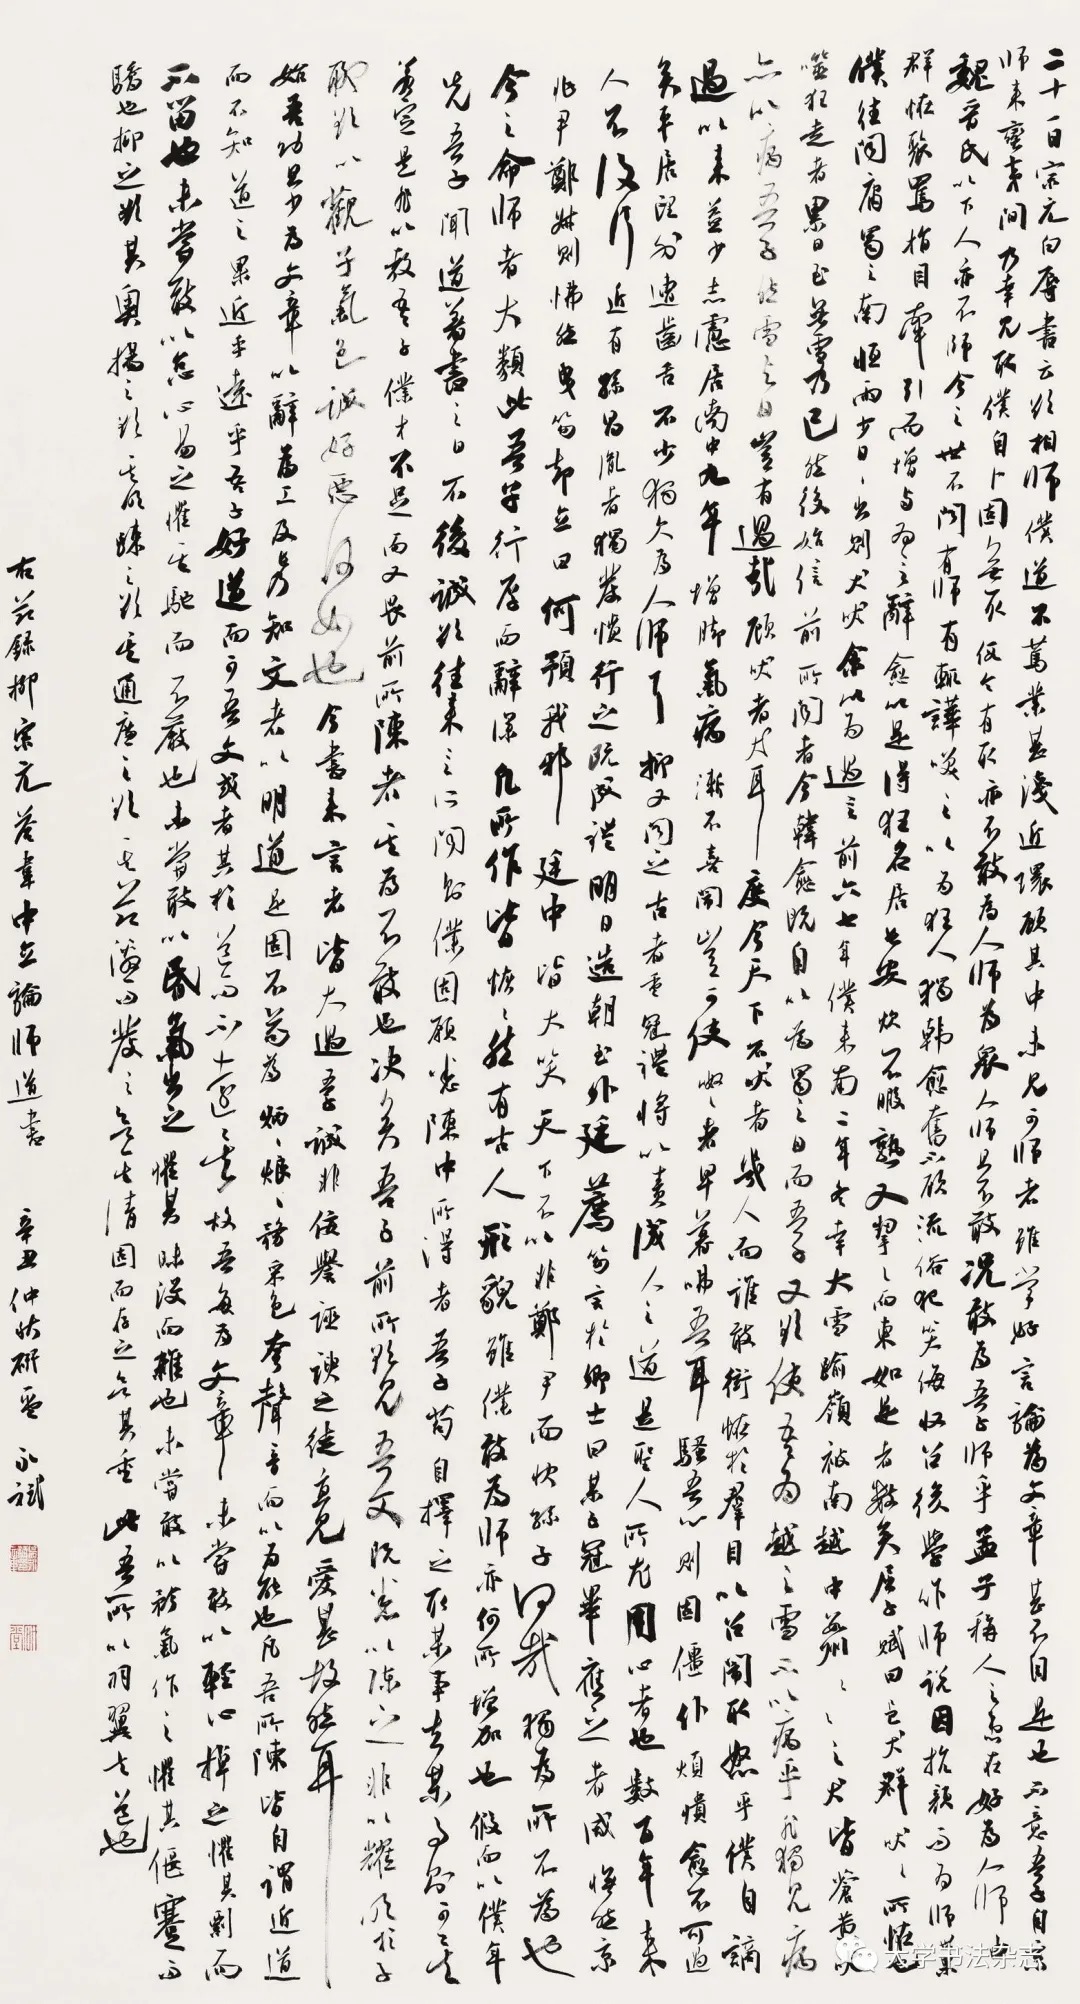 二十一日宗元白辱書云欲相師僕道不篤業甚淺近環顧其中未見可師者雖學好言論為文章甚不自是也不意吾子自京
師來蠻夷間乃幸見取僕自卜固無取假令有取亦不敢為人師為眾人師且不敢況敢為吾子師乎孟子稱人之患在好為人師由
魏晉氏以下人亦不師今之世不聞有師有輒譁笑之以為狂人獨韓愈奮不顧流俗犯笑侮收召後學作師說因抗顏而為師世果
群怪聚罵指目牽引而增與為言辭愈以是得狂名居長安炊不暇熟又挈〻而東如是者數矣屈子賦曰邑犬群吠〻所怪也
僕往聞庸蜀之南恒雨少日〻出則犬吠余以為過言前六七年僕來南二年冬幸大雪踰嶺被南越中數州〻〻之犬皆蒼黃吠
噬狂走者累日至無雪乃已然後始信前所聞者今韓愈既自以為蜀之日而吾子又欲使吾為越之雪不以病乎非獨見病
亦以病吾子然雪與日豈有過哉顧吠者犬耳度今天下不吠者幾人而誰敢衒怪於羣目以召鬧取怒乎僕自謫
過以來益少志慮居南中九年增脚氣病漸不喜鬧豈可使呶〻者早暮咈吾耳騷吾心則固僵仆煩憒愈不可過
矣平居望外遭齒舌不少獨欠為人師耳抑又聞之古者重冠禮將以責成人之道是聖人所尤用心者也數百年來
人不復行近有孫昌胤者獨發憤行之既成禮明日造朝至外廷薦笏言於卿士曰某子冠畢應之者咸憮然京
兆尹鄭叔則怫然曳笏却立曰何預我耶廷中皆大笑天下不以非鄭尹而快孫子何哉獨為所不為也
今之命師者大類此吾子行厚而辭深凡所作皆恢〻然有古人形貌雖僕敢為師亦何所增加也假而以僕年
先吾子聞道著書之日不後誠欲往來言所聞則僕固願悉陳中所得者吾子苟自擇之取某事去某事則可矣
若定是非以教吾子僕才不足而又畏前所陳者其為不敢也決矣吾子前所欲見吾文既悉以陳之非以耀明於子
聊欲以觀子氣色誠好惡何如也今書來言者皆大過吾子誠非佞譽誣諛之徒直見愛甚故然耳
始吾幼且少為文章以辭為工及長乃知文者以明道是固不苟為炳〻烺〻務采色夸聲音而以為能也凡吾所陳皆自謂近道
而不知道之果近乎遠乎吾子好道而可吾文或者其於道不遠矣故吾每為文章未嘗敢以輕心掉之懼其剽而
不留也未嘗敢以怠心易之懼其弛而不嚴也未嘗敢以昏氣出之懼其昧沒而雜也未嘗敢以矜氣作之懼其偃蹇而
驕也抑之欲其奧揚之欲其明疎之欲其通廉之欲其節激而發之欲其清固而存之欲其重此吾所以羽翼夫道也
右節錄柳宗元答韋中立論師道書 辛丑仲秋研墨 永斌
大学书法杂志